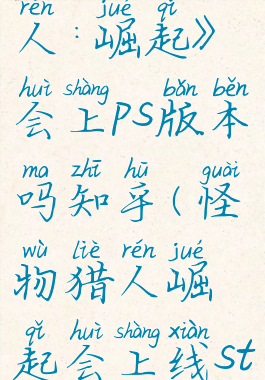 rén jué qǐ
人：崛起》
huì shàng bǎn běn
会上PS版本
ma zhī hū guài
吗知乎(怪
wù liè rén jué
物猎人崛
qǐ huì shàng xiàn
起会上线st